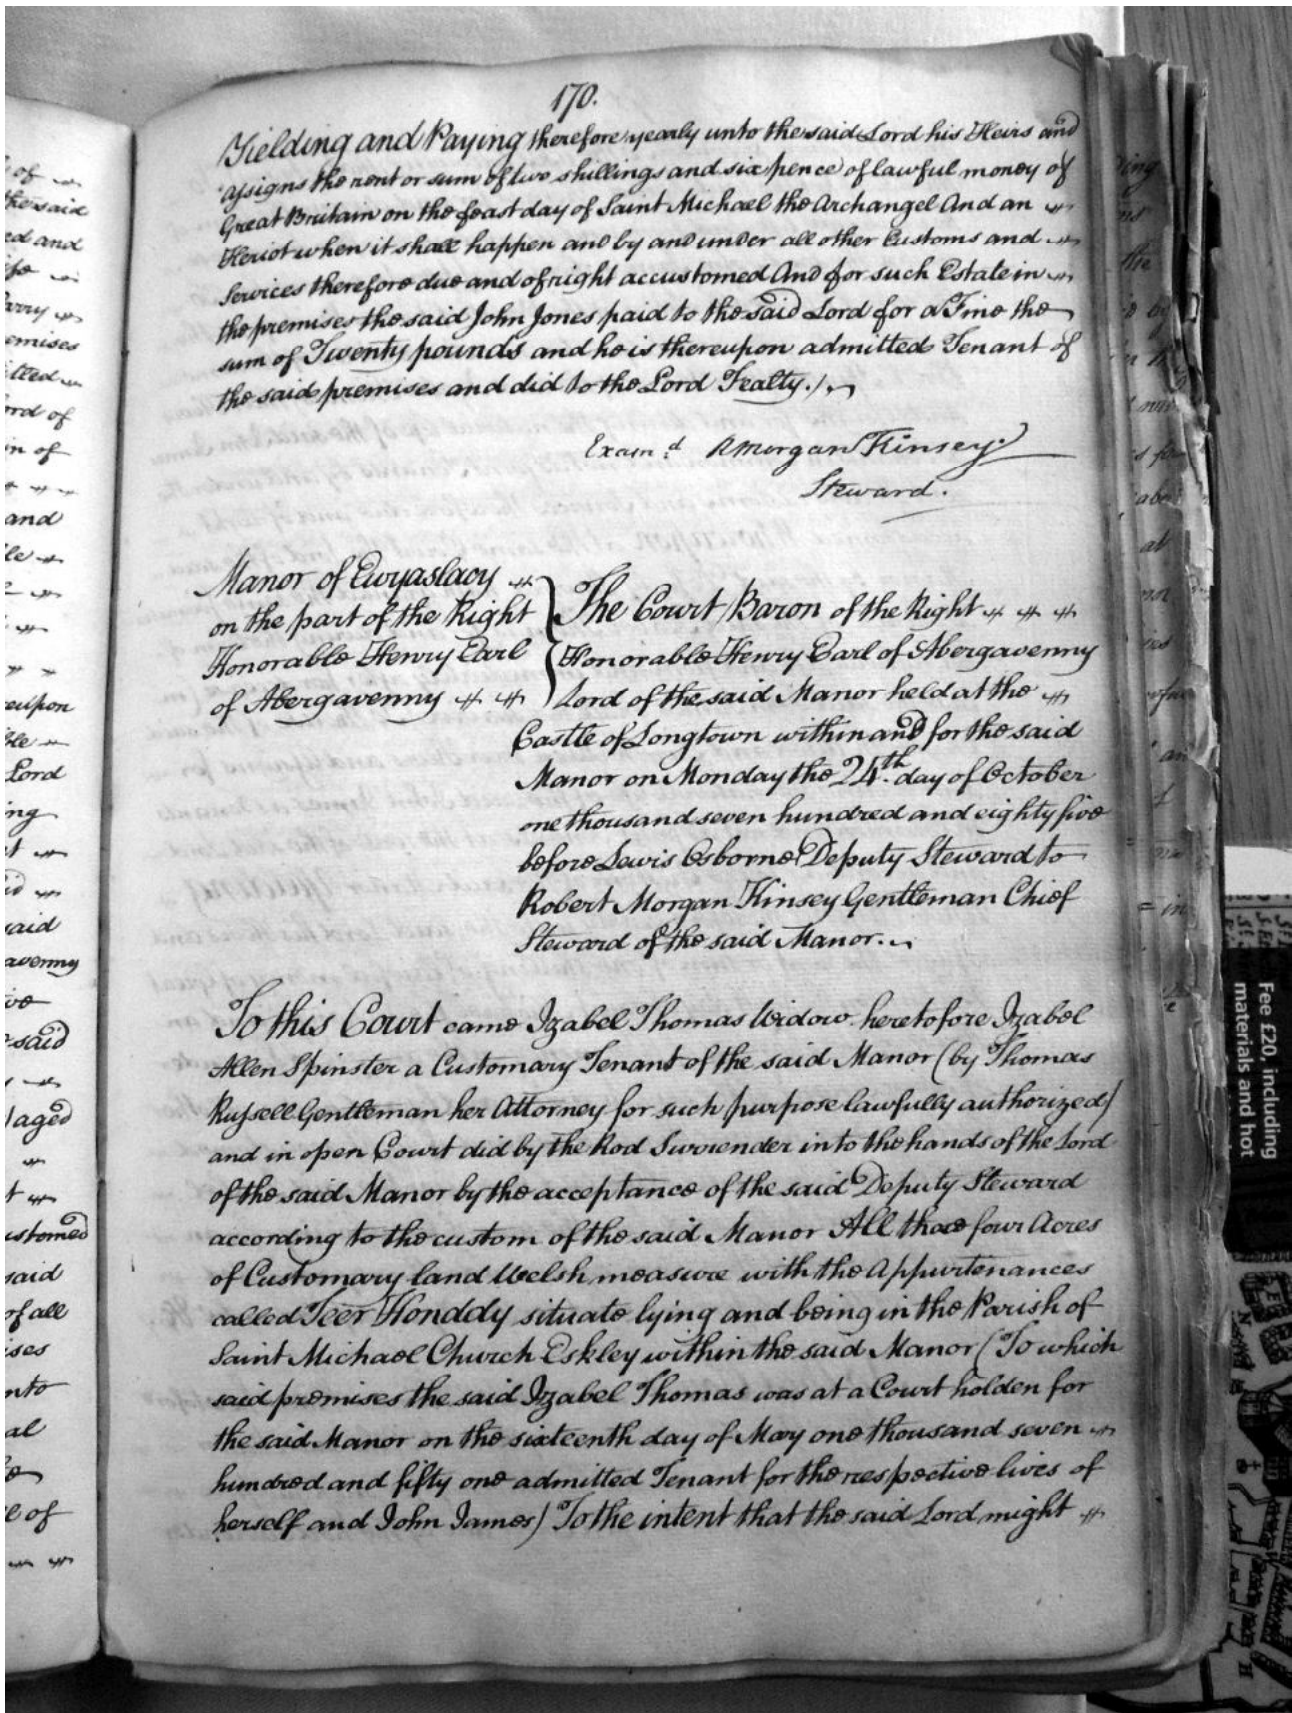 170.
Yielding and Paying therefore yearly unto the said Lord his Heirs and
assigns the rent or sum of two shillings and six pence of lawful money of
Great Britain on the feast day of Saint Michael the Archangel And an
Heriot when it shall happen and by and under all other Customs and
Services therefore due and of right accustomed And for such Estate in
the premises the said John Jones paid to the said Lord for a Fine the
sum of Twenty pounds and he is thereupon admitted Tenant of
the said premises and did to the Lord Fealty.
Exam.d RMorgan Kinsey
Steward.
Manor of Ewyaslacy
on the part of the Right
Honorable Henry Earl
of Abergavenny
The Court Baron of the Right
Honorable Henry Earl of Abergavenny
Lord of the said Manor held at the
Castle of Longtown within and for the said
Manor on Monday the 24th. day of October
one thousand seven hundred and eighty five
before Lewis Osborne Deputy Steward to
Robert Morgan Kinsey Gentleman Chief
Steward of the said Manor.
To this Court came Izabel Thomas Widow heretofore Izabel
Allen Spinster a Customary Tenant of the said Manor (by Thomas
Russell Gentleman her Attorney for such purpose lawfully authorized)
and in open Court did by the Rod Surrender into the hands of the Lord
of the said Manor by the acceptance of the said Deputy Steward
according to the custom of the said Manor All those four Acres
of Customary land Welsh measure with the Appurtenances
called Teer Honddy situate lying and being in the Parish of
Saint Michael Church Eskley within the said Manor (To which
said premises the said Izabel Thomas was at a Court holden for
the said Manor on the sixteenth day of May one thousand seven
hundred and fifty one admitted Tenant for the respective lives of
herself and John James) To the intent that the said Lord might
of
the said
ed and
arry
emises
itted
ord of
in of
and
le
eupon
ble
Lord
ing
said
avenny
said
aged
ustomed
said
of all
ises
nto
al
e of
Fee £20, including
materials and hot